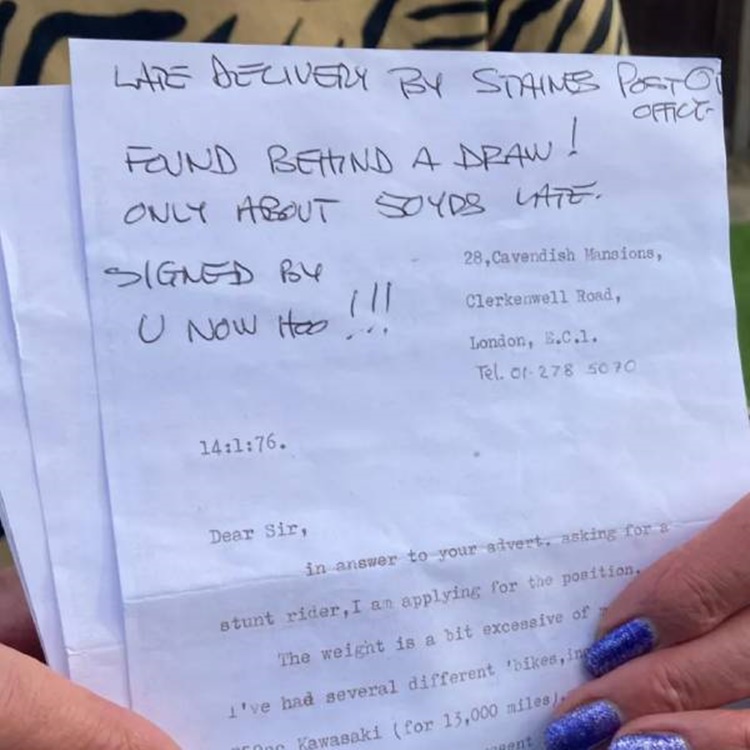 LATE DELIVERY BY STAINES POST O
OFFICE
FOUND BEHIND A DRAW!
ONLY ABOUT 50YDS LATE.
SIGNED BY
U NOW HOO !!!
28,Cavendish Mansions,
Clerkenwell Road,
London, E.C.1.
Tel. 01-278 5070
14:1:76.
Dear Sir,
in answer to your advert. asking for a
stunt rider,I am applying for the position.
The weight is a bit excessive of
I've had several different 'bikes,
Kawasaki (for 15,000 miles)